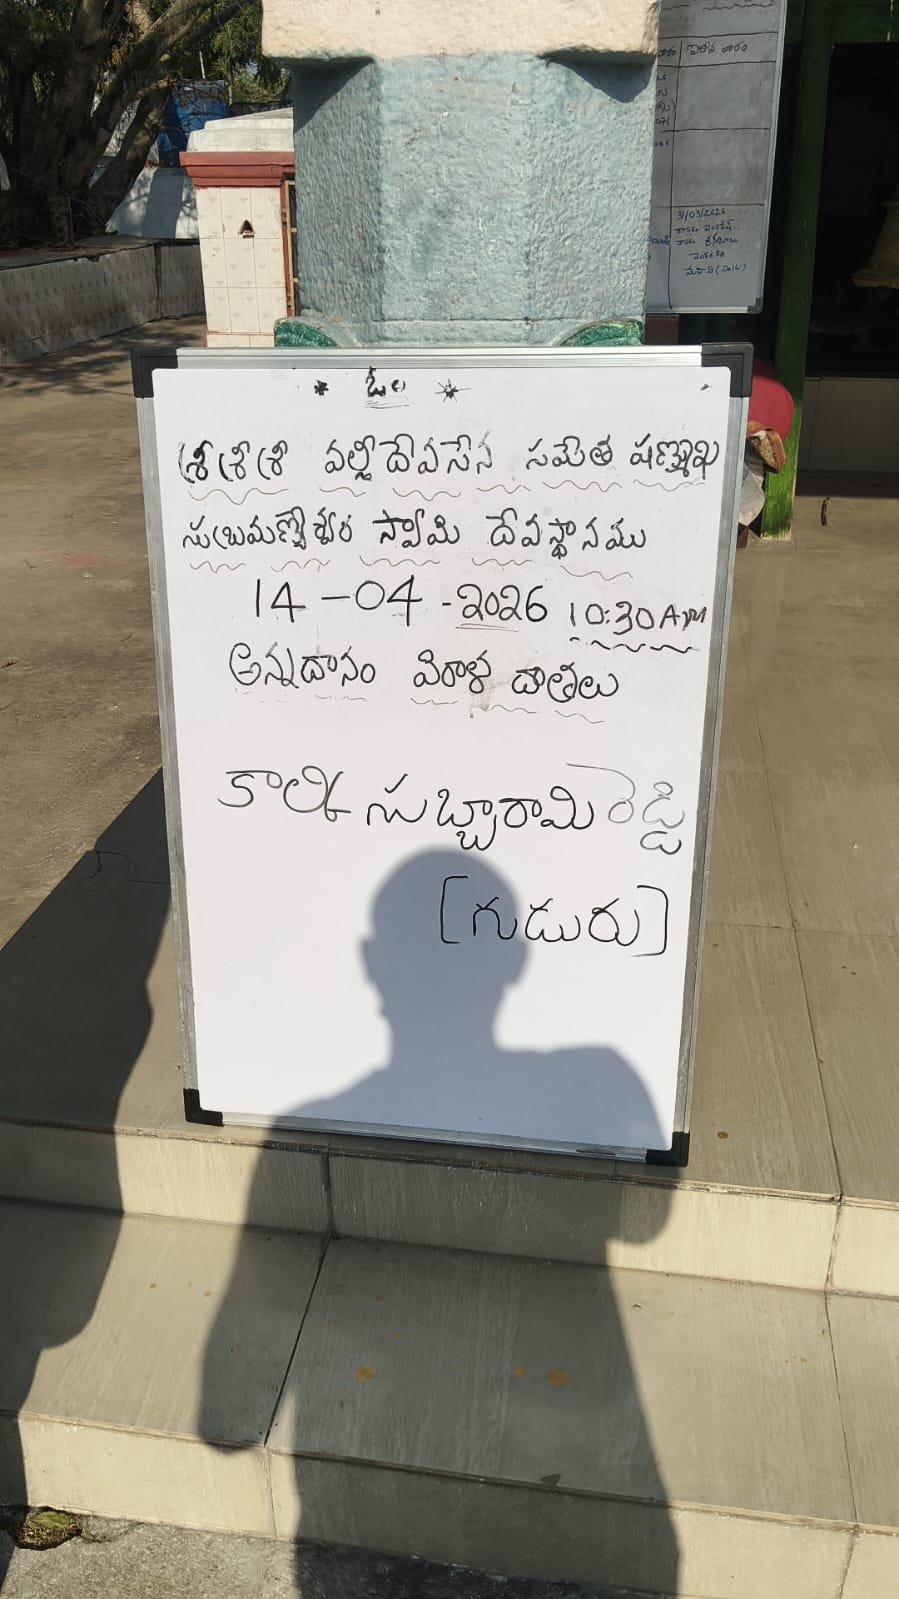 * ఓం *
శ్రీ శ్రీ శ్రీ వల్లిదేవసేన సమేత షణ్ముఖ
సుబ్రమణ్యేశ్వర స్వామి దేవస్థానము
14-04-2026 10:30AM
అన్నదానం విరాళ దాతలు
కాల్కి సుబ్బారామి రెడ్డి
[గుడురు]
31/03/2026